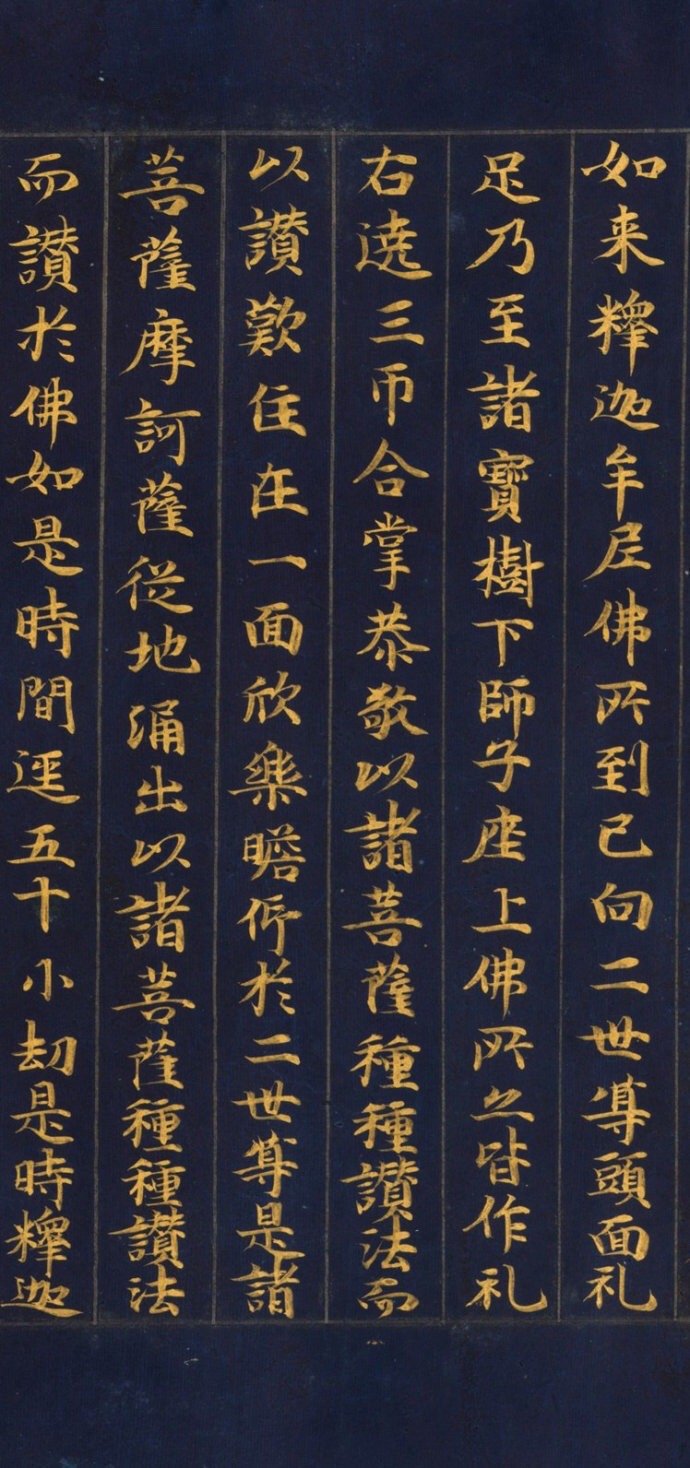 如来釋迦牟尼佛所到已向二世尊頭面礼
足乃至諸寶樹下師子座上佛所亦皆作礼
右遶三帀合掌恭敬以諸菩薩種種讃法而
以讃歎住在一面欣樂瞻仰於二世尊是諸
菩薩摩訶薩従地涌出以諸菩薩種種讃法
而讃於佛如是時間逕五十小劫是時釋迦